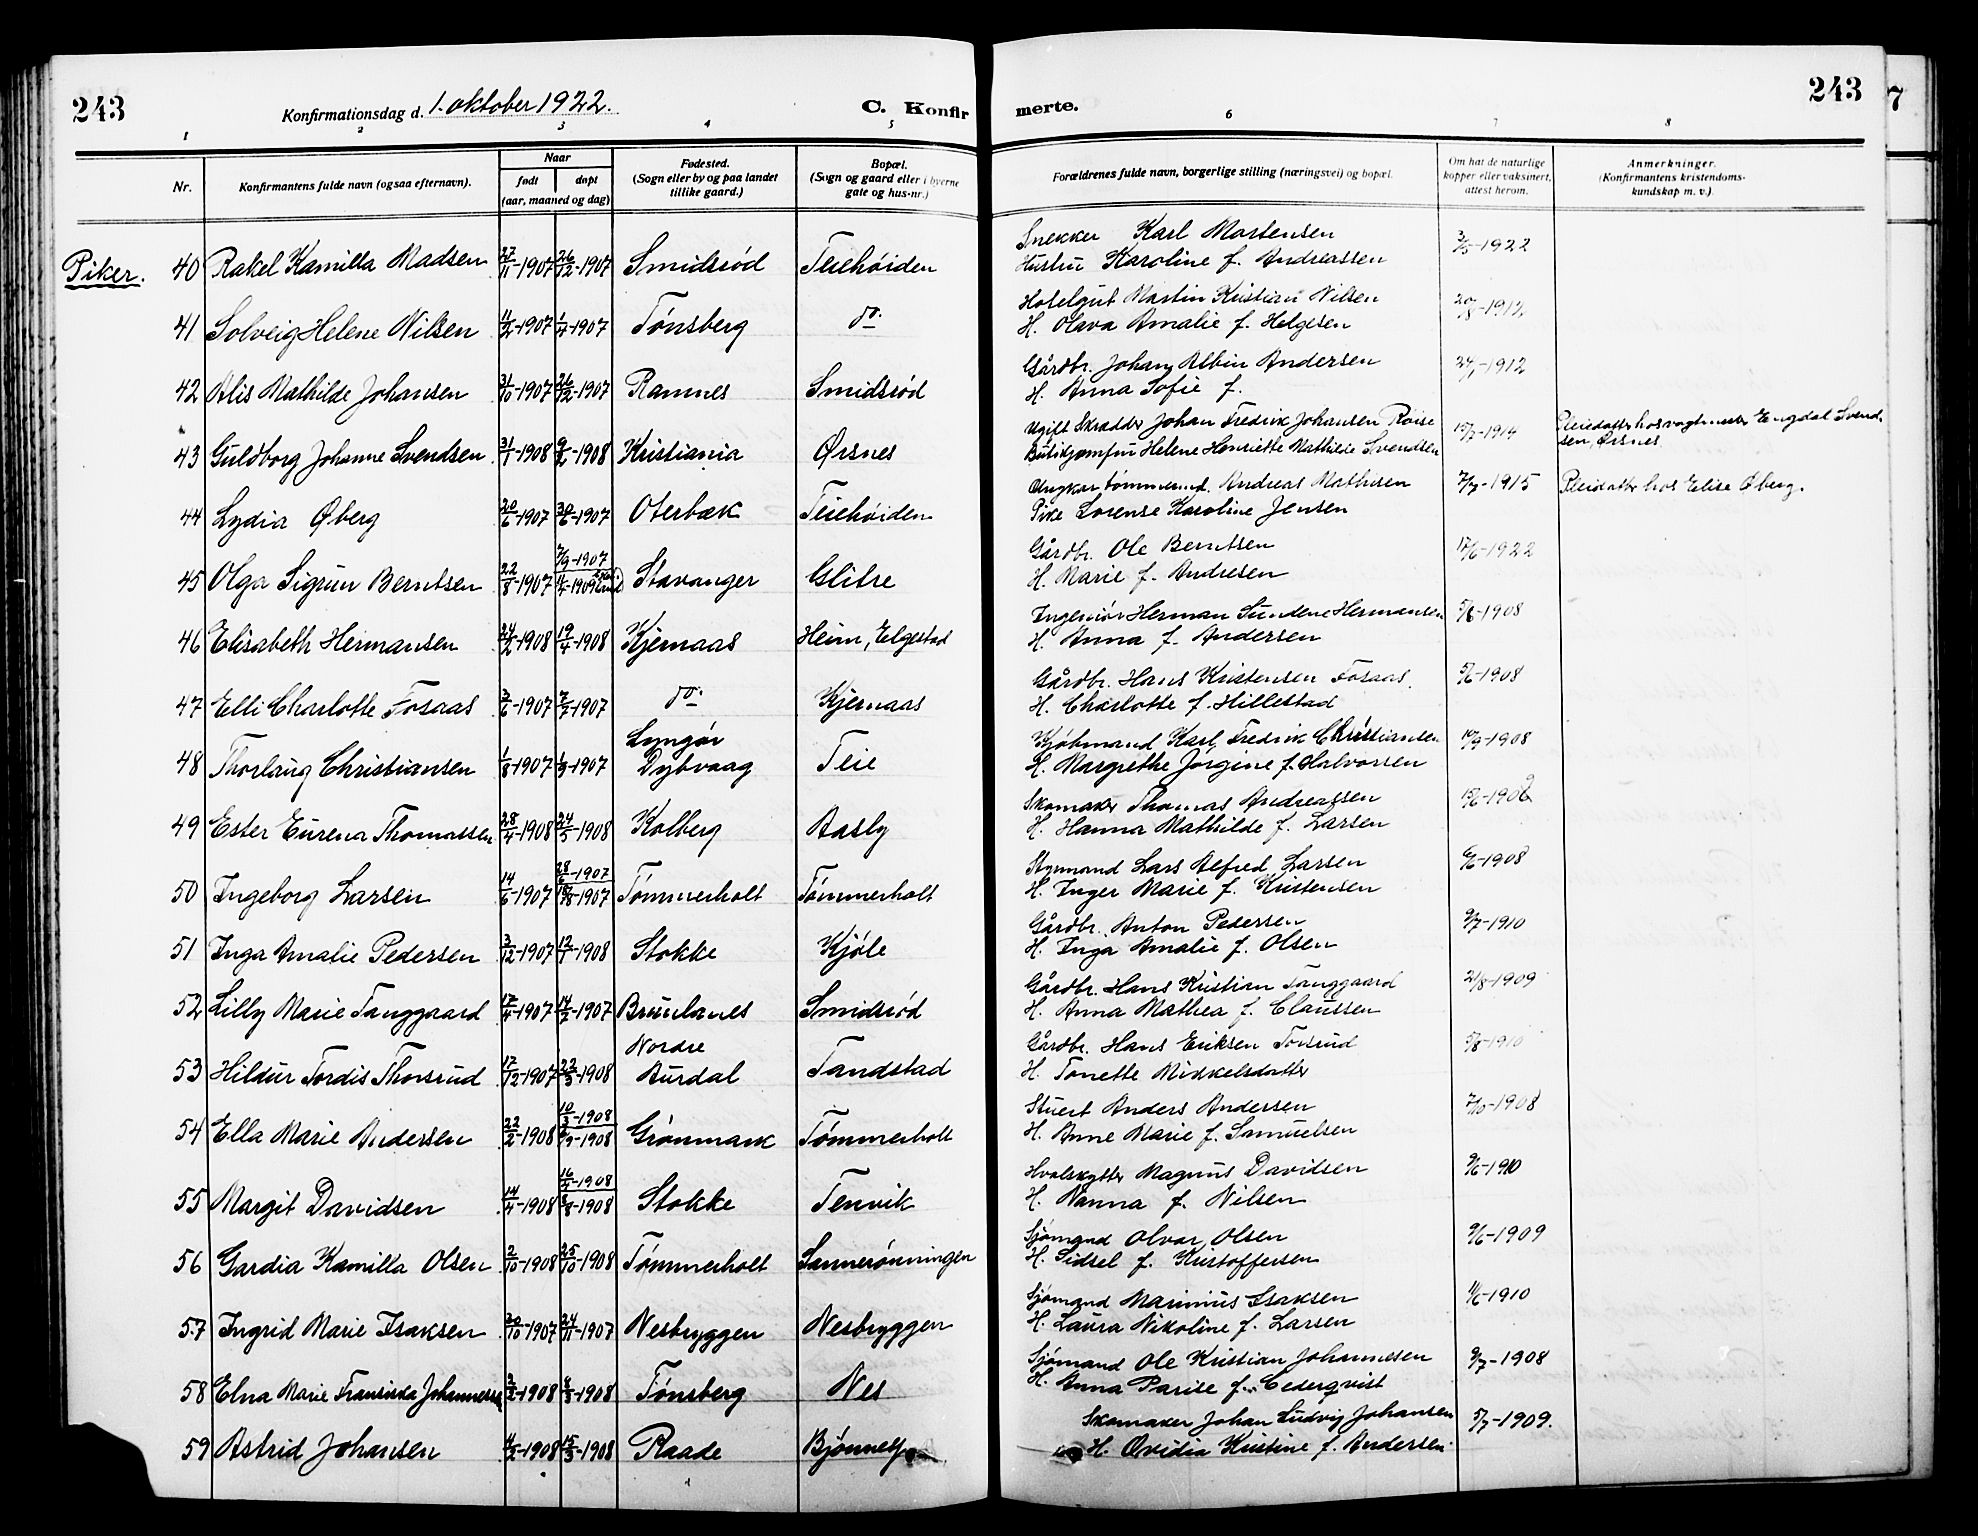 243 Konfirmationsdag d. 1. oktober 1922. C. Konfirmerte. 243
1 2 3 4 5 6 7 8
Nr. Konfirmantens fulde navn (ogsaa efternavn). Naar født døpt (aar, maaned og dag) Fødested. (Sogn eller by og paa landet tillike gaard.) Bopæl. (Sogn og gaard eller i byerne gate og hus-nr.) Forældrenes fulde navn, borgerlige stilling (næringsvei) og bopæl. Om hat de naturlige kopper eller vaksinert, attest herom. Anmerkninger. (Konfirmantens kristendomskundskap m. v.).
Piker. 40 Rakel Kamilla Madsen 27/11-1907 26/12-1907 Smidsrød Teiehøiden Snekker Karl Mortensen 3/5-1922
Hustru Karoline f. Andreassen
41 Solveig Helene Nilsen 11/2-1907 1/4-1907 Tønsberg do. Hotelgut Martin Kristian Nilsen 20/8-1912
H. Olava Amalie f. Helgesen
42 Alis Mathilde Johansen 31/10-1907 26/12-1907 Ramnes Smidsrød Gårdbr. Johan Albin Andersen 24/1-1912
H. Anna Sofie f.
43 Guldborg Johanne Svendsen 31/1-1908 9/2-1908 Kristiania Ørsnes Ugift Skrædder Johan Fredrik Johansen Roise 15/7-1914 Pleiedatter hos vagtmester Engdal Svend-
Butikjomfru Helene Henriette Mathilde Svendsen sen, Ørsnes
44 Lydia Øberg 20/6-1907 30/6-1907 Oterbæk Teiehøiden Ungkar tømmermd. Andreas Mathisen 7/7-1915 Pleiedatter hos Elise Øberg.
Pike Lorense Karoline Jensen
45 Olga Sigrun Berntsen 22/8-1907 7/9-1907 11/4-1909 Stavanger Glitre Gårdbr. Ole Berntsen 17/6-1922
H. Marie f. Andresen
46 Elisabeth Hermansen 24/2-1908 19/4-1908 Kjernaas Heim, Elgestad Ingeniør Herman Sundene Hermansen 5/6-1908
H. Anna f. Andersen
47 Elli Charlotte Fosaas 3/6-1907 7/7-1907 do. Kjernaas Gårdbr. Hans Kristensen Fosaas 5/6-1908
H. Charlotte f. Hillestad
48 Thorlaug Christiansen 1/8-1907 1/9-1907 Lyngør Dybvaag Teie Kjøbmand Karl Fredrik Christiansen 19/9-1908
H. Margrethe Jørgine f. Halvorsen
49 Ester Eurena Thomassen 28/4-1908 24/5-1908 Kolberg Aasly Skomaker Thomas Andreassen 15/6-1909
H. Hanna Mathilde f. Larsen
50 Ingeborg Larsen 14/6-1907 28/6-1907 18/8-1907 Tømmerholt Tømmerholt Styrmand Lars Alfred Larsen 6/6-1908
H. Inger Marie f. Kristensen
51 Inga Amalie Pedersen 3/12-1907 12/1-1908 Stokke Kjøle Gårdbr. Anton Pedersen 9/7-1910
H. Inga Amalie f. Olsen
52 Lilly Marie Tanggaard 17/4-1907 14/7-1907 Brunlanes Smidsrød Gårdbr. Hans Kristian Tanggaard 21/8-1909
H. Anna Mathea f. Claussen
53 Hildur Tordis Thorsrud 17/12-1907 22/3-1908 Nordre Aurdal Tandstad Gårdbr. Hans Eriksen Torsrud 5/8-1910
H. Tonette Mikkelsdatter
54 Ella Marie Andersen 22/2-1908 10/3-1908 6/9-1908 Grønmark Tømmerholt Stuert Anders Andersen 7/10-1908
H. Anne Marie f. Samuelsen
55 Margit Davidsen 14/4-1908 16/4-1908 8/8-1908 Stokke Tenvik Hvalskytter Magnus Davidsen 9/6-1910
H. Nanna f. Nilsen
56 Gardia Kamilla Olsen 2/10-1908 25/10-1908 Tømmerholt Sannerønningen Sjømand Olvar Olsen 9/6-1909
H. Sidsel f. Kristoffersen
57 Ingrid Marie Isaksen 30/10-1907 24/11-1907 Nesbryggen Nesbryggen Sjømand Marinius Isaksen 11/6-1910
H. Laura Nikoline f. Larsen
58 Elna Marie Fransiska Johannessen 3/2-1908 8/3-1908 Tønsberg Nes Sjømand Ole Kristian Johannesen 9/7-1908
H. Anna Parise f. Cederqvist
59 Astrid Johansen 4/2-1908 15/3-1908 Raade Skomaker Johan Ludvig Johansen 5/7-1909.
H. Ovidia Kristine f. Andersen